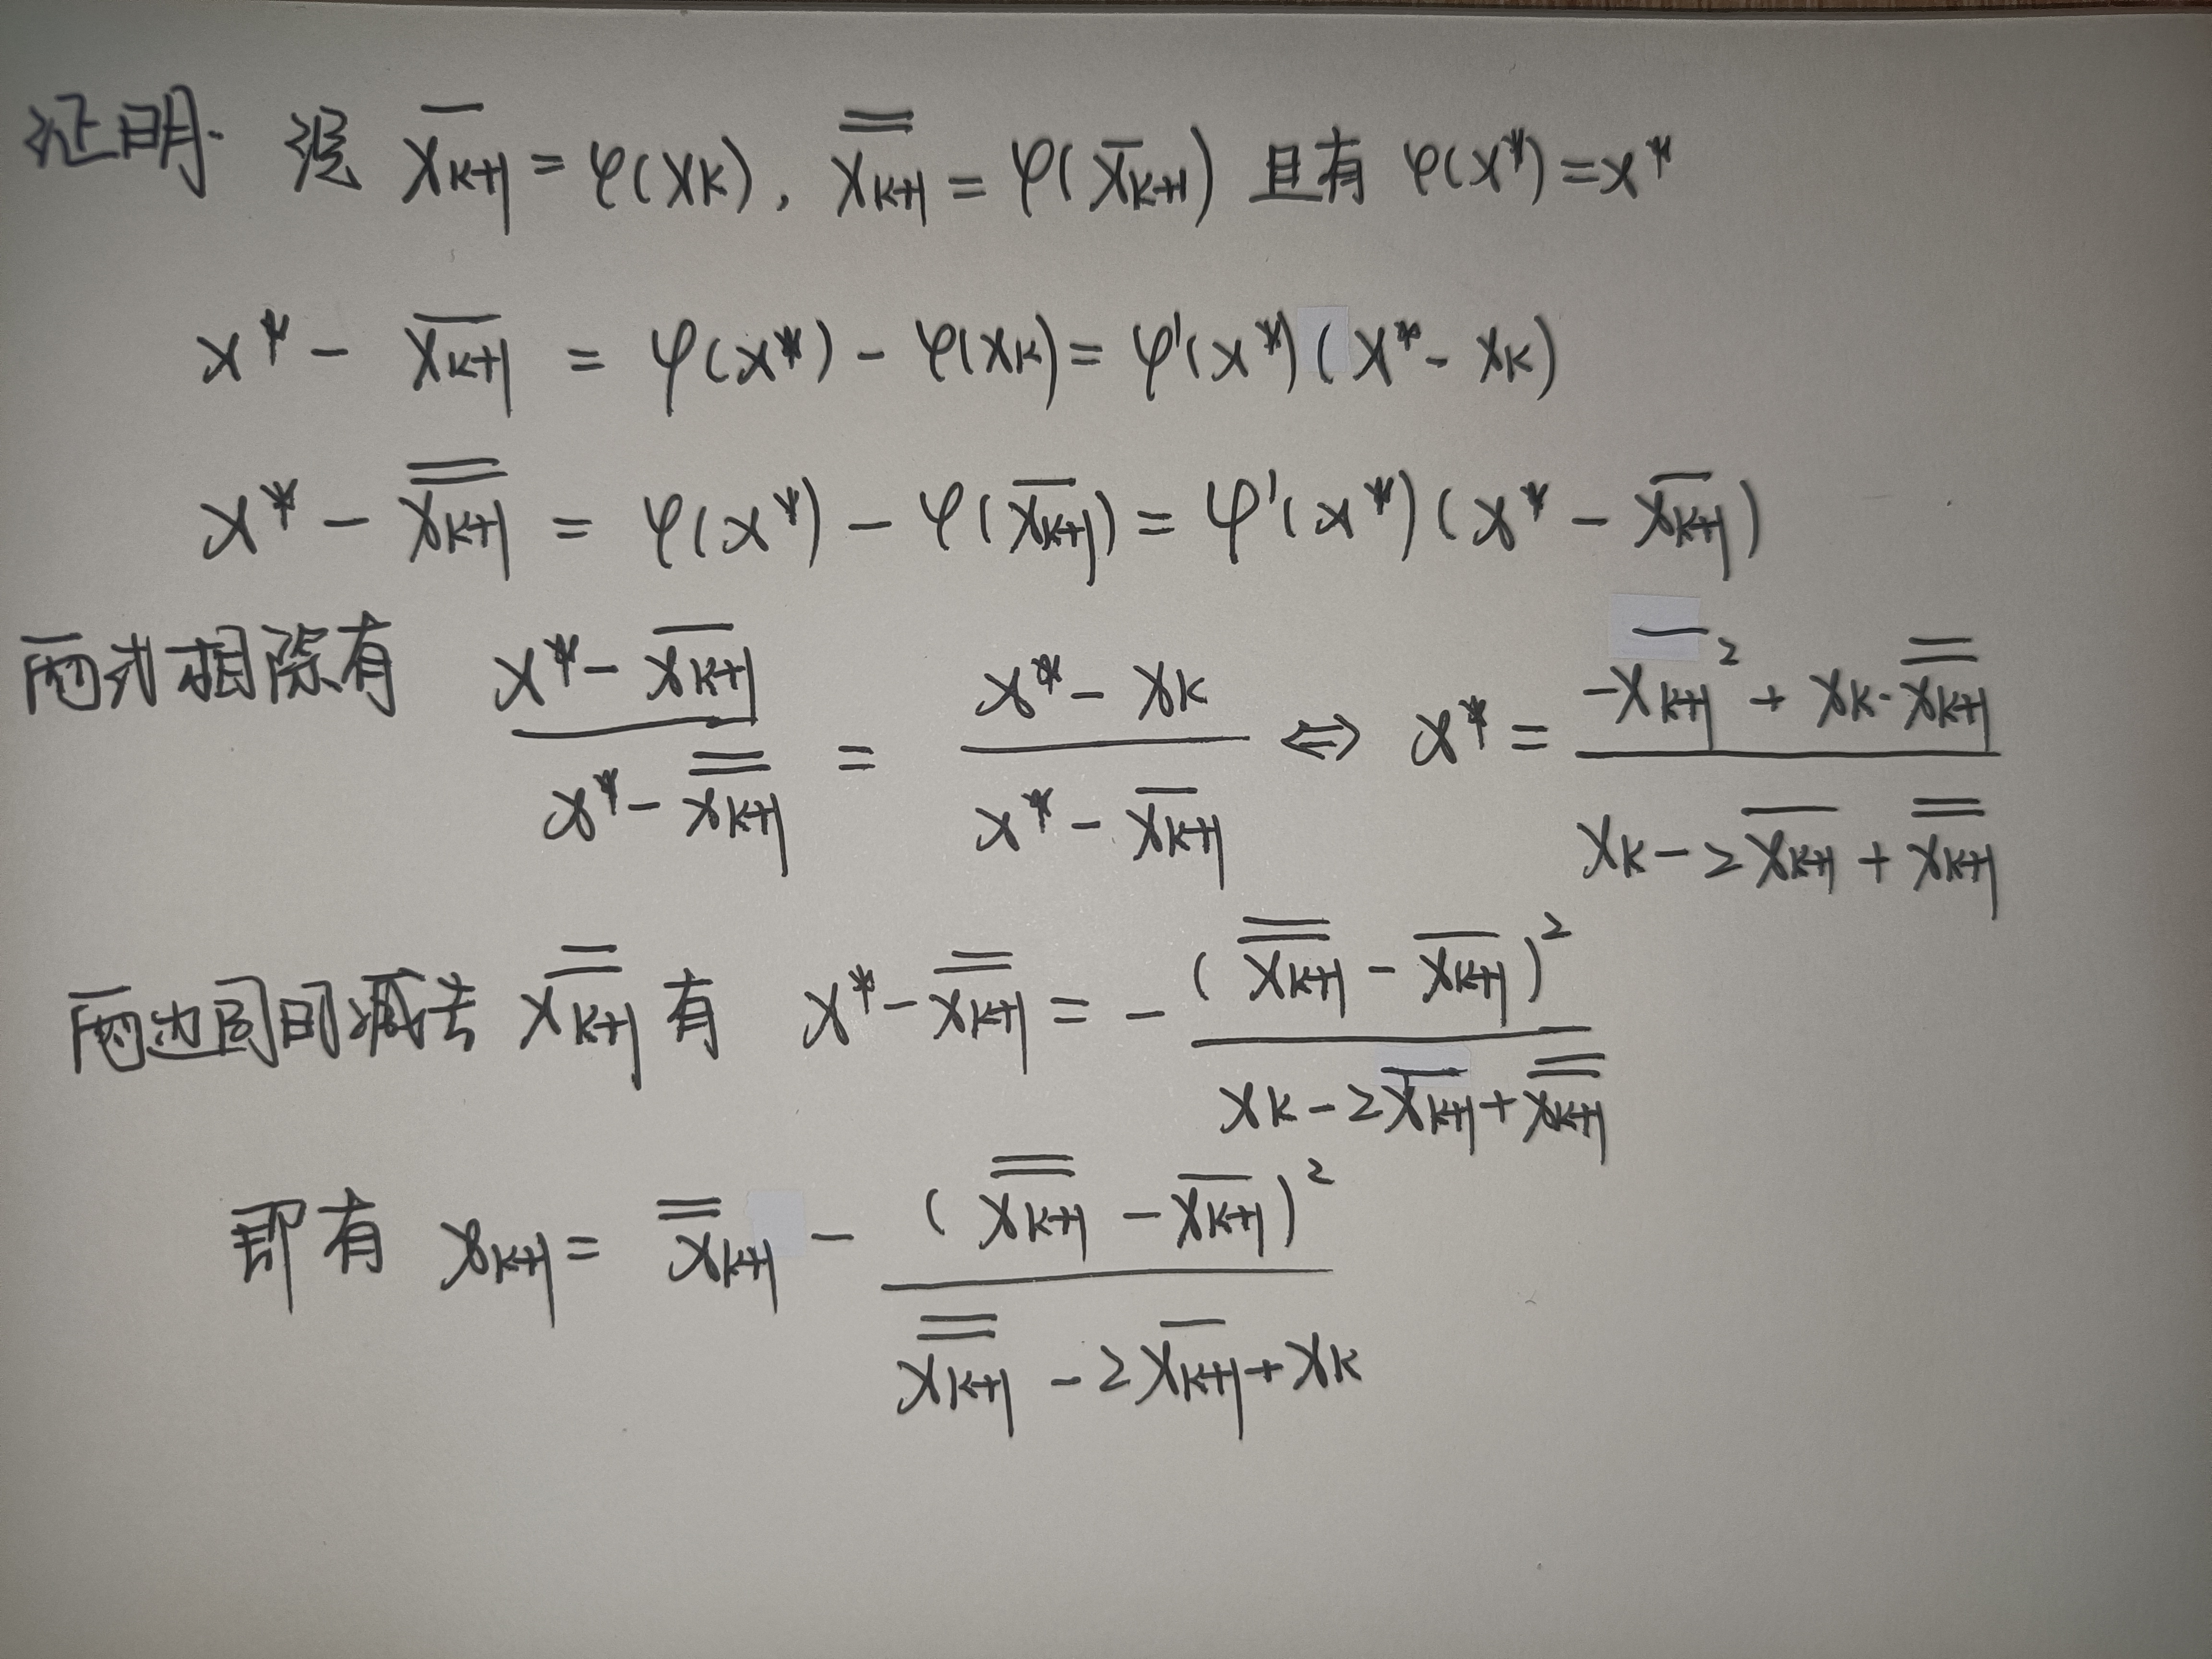 证明. 设 \overline{x_{k+1}} = φ(x_k), \overline{\overline{x_{k+1}}} = φ(\overline{x_{k+1}}) 且有 φ(x*) = x*
x* - \overline{x_{k+1}} = φ(x*) - φ(x_k) = φ'(x*)(x* - x_k)
x* - \overline{\overline{x_{k+1}}} = φ(x*) - φ(\overline{x_{k+1}}) = φ'(x*)(x* - \overline{x_{k+1}})
两式相除有 \frac{x* - \overline{x_{k+1}}}{x* - \overline{\overline{x_{k+1}}}} = \frac{x* - x_k}{x* - \overline{x_{k+1}}} ⇔ x* = \frac{-\overline{x_{k+1}}^2 + x_k · \overline{\overline{x_{k+1}}}}{x_k - 2\overline{x_{k+1}} + \overline{\overline{x_{k+1}}}}
两边同时减去 \overline{\overline{x_{k+1}}} 有 x* - \overline{\overline{x_{k+1}}} = - \frac{(\overline{\overline{x_{k+1}}} - \overline{x_{k+1}})^2}{x_k - 2\overline{x_{k+1}} + \overline{\overline{x_{k+1}}}}
即有 x_{k+1} = \overline{\overline{x}}_{k+1} - \frac{(\overline{\overline{x_{k+1}}} - \overline{x_{k+1}})^2}{\overline{\overline{x_{k+1}}} - 2\overline{x_{k+1}} + x_k}